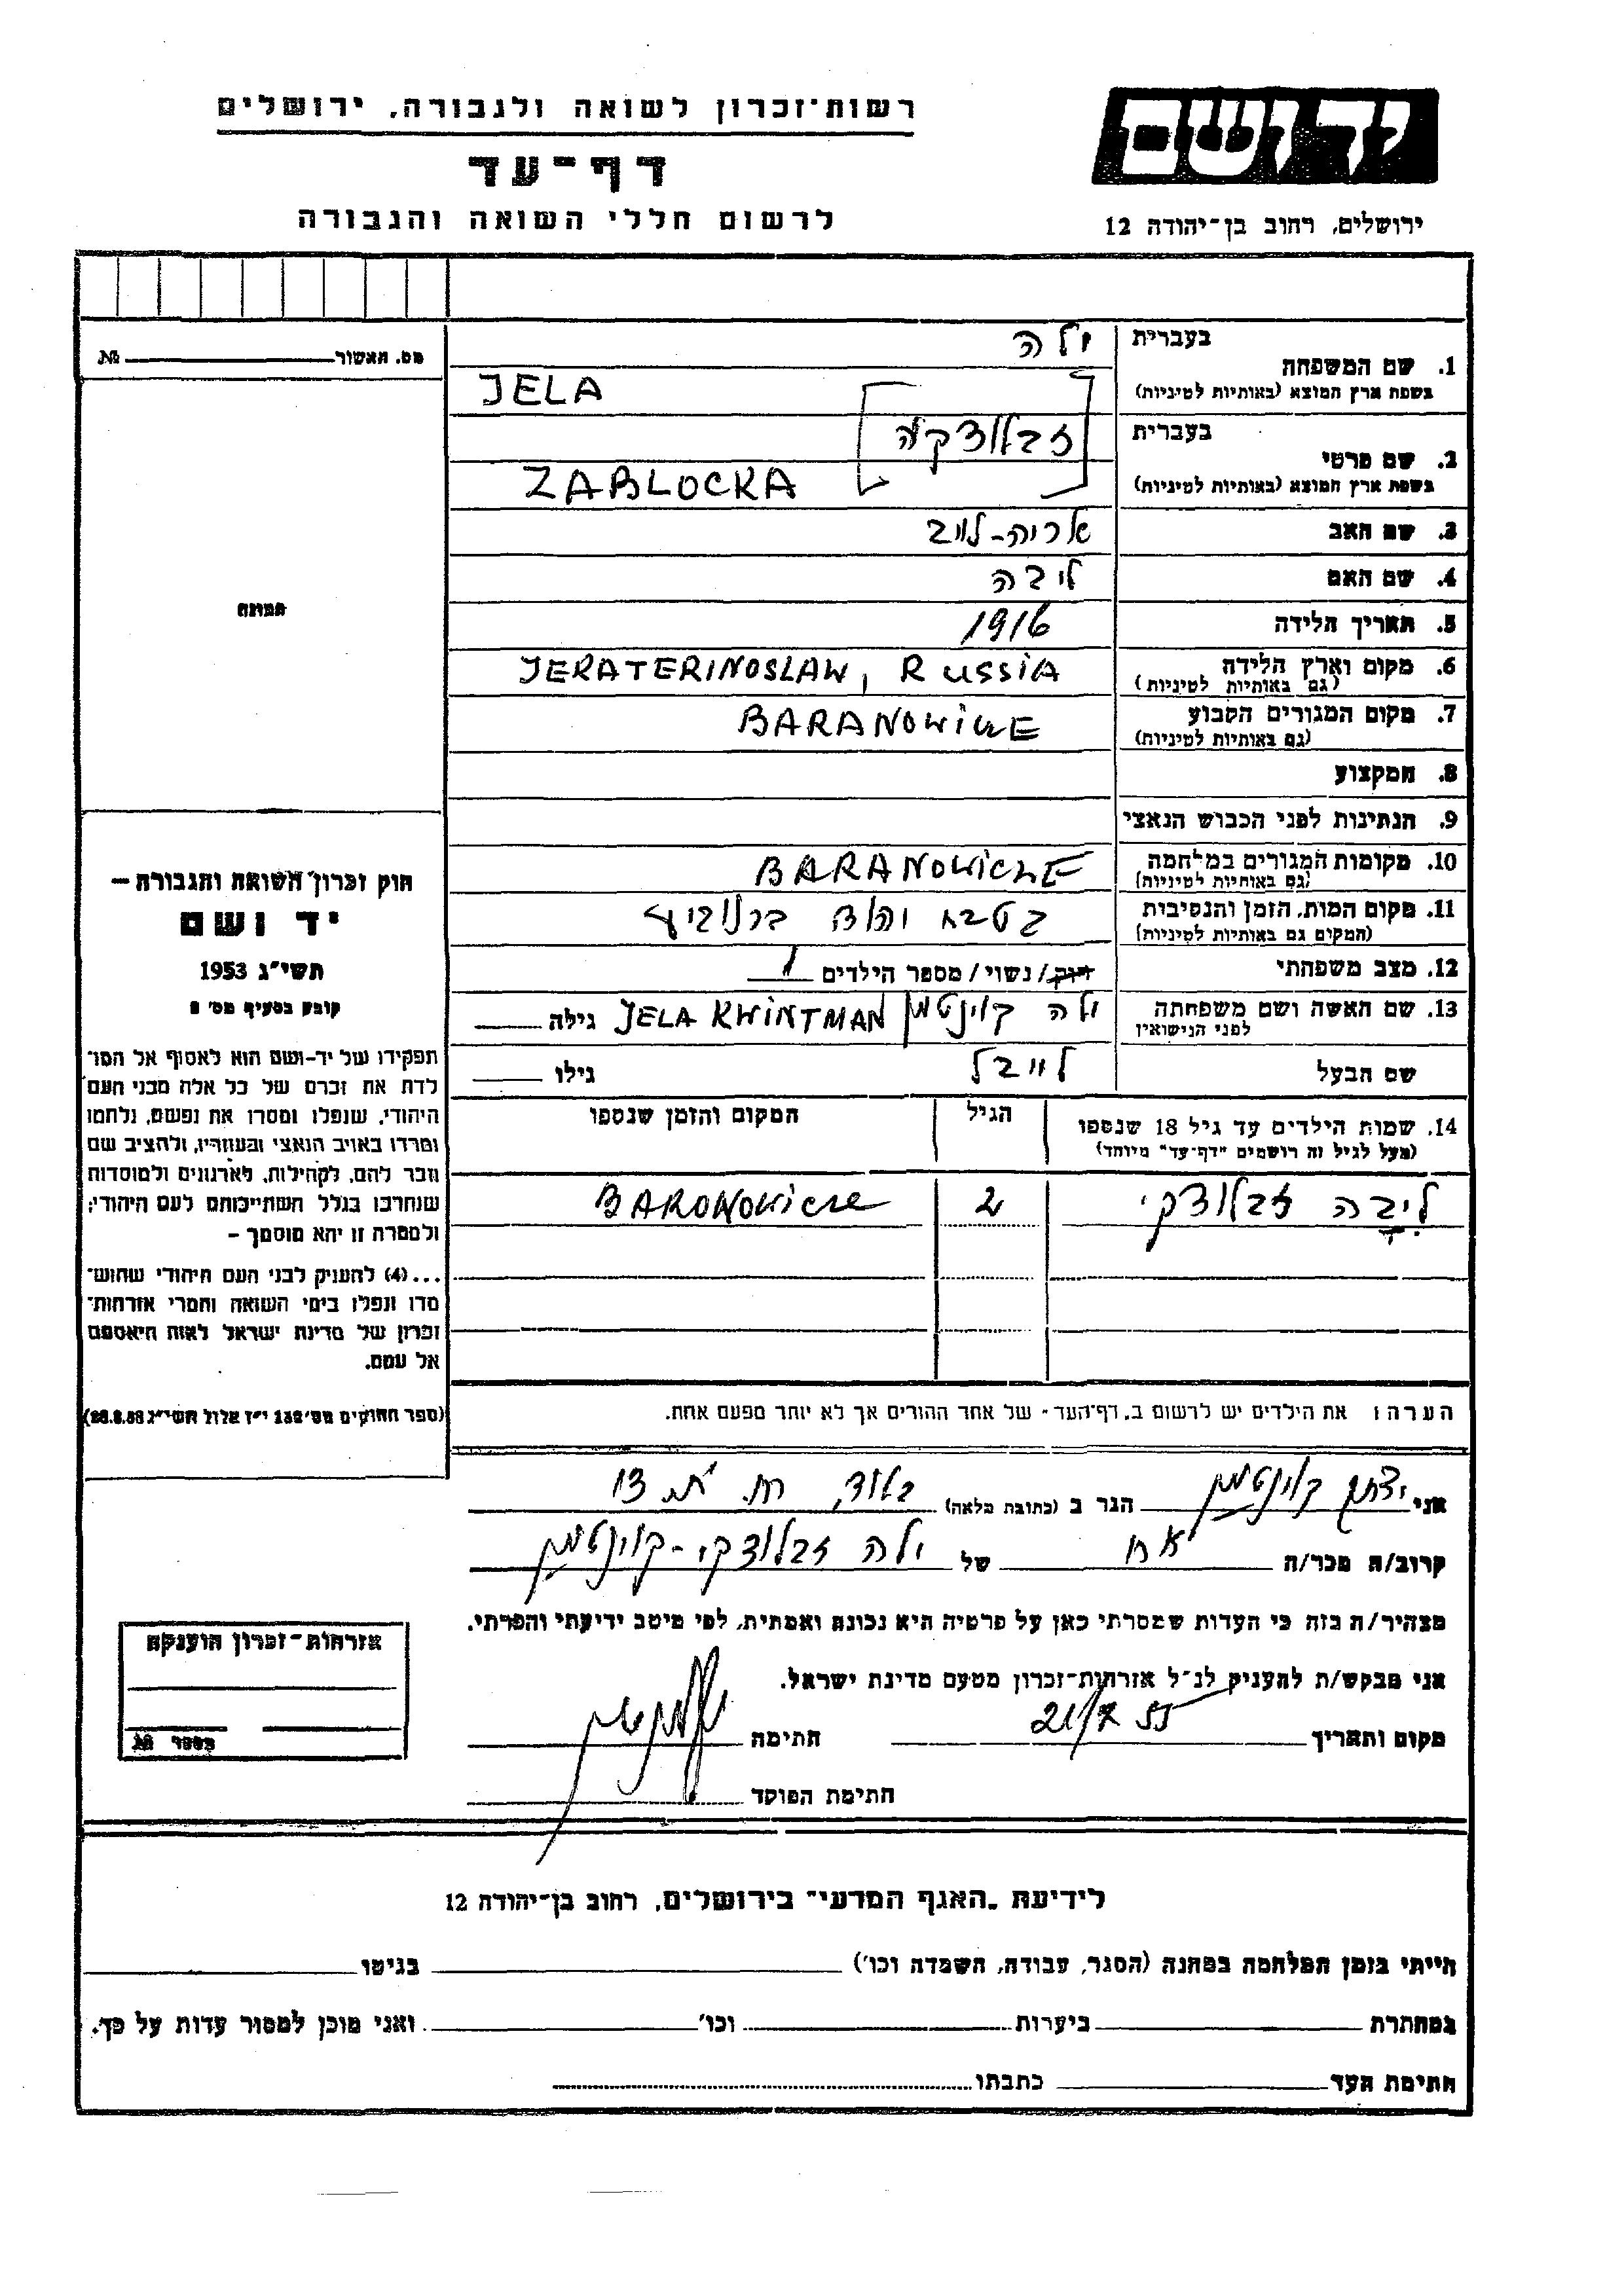 רשות־זכרון לשואה ולגבורה, ירושלים
דף־עד
לרשום חללי השואה והגבורה
יד ושם
ירושלים, רחוב בן־יהודה 12
מס. תאשור №
תמונה
חוק זכרון השואה והגבורה —
יד ושם
תשי״ג 1953
קובע בסעיף מס׳ 2
תפקידו של יד-ושם הוא לאסוף אל המו־
לדת את זכרם של כל אלה מבני העם
היהודי, שנפלו ומסרו את נפשם, נלחמו
ומרדו באויב הנאצי ובעוזריו, ולהציב שם
וזכר להם, לקהילות, לארגונים ולמוסדות
שנחרבו בגלל השתייכותם לעם היהודי;
ולמטרה זו יהא מוסמך —
...(4) להעניק לבני העם היהודי שהוש־
מדו ונפלו בימי השואה והמרי אזרחות־
זכרון של מדינת ישראל לאות היאספם
אל עמם.
(ספר החוקים מס׳ 132 י״ז אלול תשי״ג 28.8.53)
בעברית ילה
1. שם המשפחה
בשפת ארץ המוצא (באותיות לטיניות) JELA
בעברית זבלוצקה
2. שם פרטי
בשפת ארץ המוצא (באותיות לטיניות) ZABLOCKA
3. שם האב אריה-לייב
4. שם האם ליבה
5. תאריך הלידה 1916
6. מקום וארץ הלידה JEKATERINOSLAW, RUSSIA
(גם באותיות לטיניות)
7. מקום המגורים הקבוע BARANOWICZE
(גם באותיות לטיניות)
8. המקצוע
9. הנתינות לפני הכבוש הנאצי
10. מקומות המגורים במלחמה BARANOWICZE
(גם באותיות לטיניות)
11. מקום המות, הזמן והנסיבות
(המקום גם באותיות לטיניות)
12. מצב משפחתי רווק/ נשוי/ מספר הילדים 1
13. שם האשה ושם משפחתה ילה קוינטמן JELA KWINTMAN גילה
לפני הנישואין
שם הבעל לייבל גילו
14. שמות הילדים עד גיל 18 שנספו הגיל המקום והזמן שנספו
(מעל לגיל זה רושמים "דף־עד" מיוחד)
ליבה זבלוצקי 2 BARONOWICZE
הערה: את הילדים יש לרשום ב„דף־העד״ של אחד ההורים אך לא יותר מפעם אחת.
אני יצחק קוינטמן הגר ב (כתובת מלאה)
קרוב/ה מכר/ה אח של ילה זבלוצקי-קוינטמן
מצהיר/ה בזה כי העדות שמסרתי כאן על פרטיה היא נכונה ואמתית, לפי מיטב ידיעתי והכרתי.
אני מבקש/ת להעניק לנ״ל אזרחות־זכרון מטעם מדינת ישראל.
מקום ותאריך 21/7 55 חתימה
חתימת הפוקד
אזרחות־זכרון הוענקה
מספר №
לידיעת „האגף המדעי״ בירושלים, רחוב בן־יהודה 12
הייתי בזמן המלחמה במחנה (הסגר, עבודה, השמדה וכו׳) בגיטו
במחתרת ביערות וכו׳ ואני מוכן למסור עדות על כך.
חתימת העד כתבתו